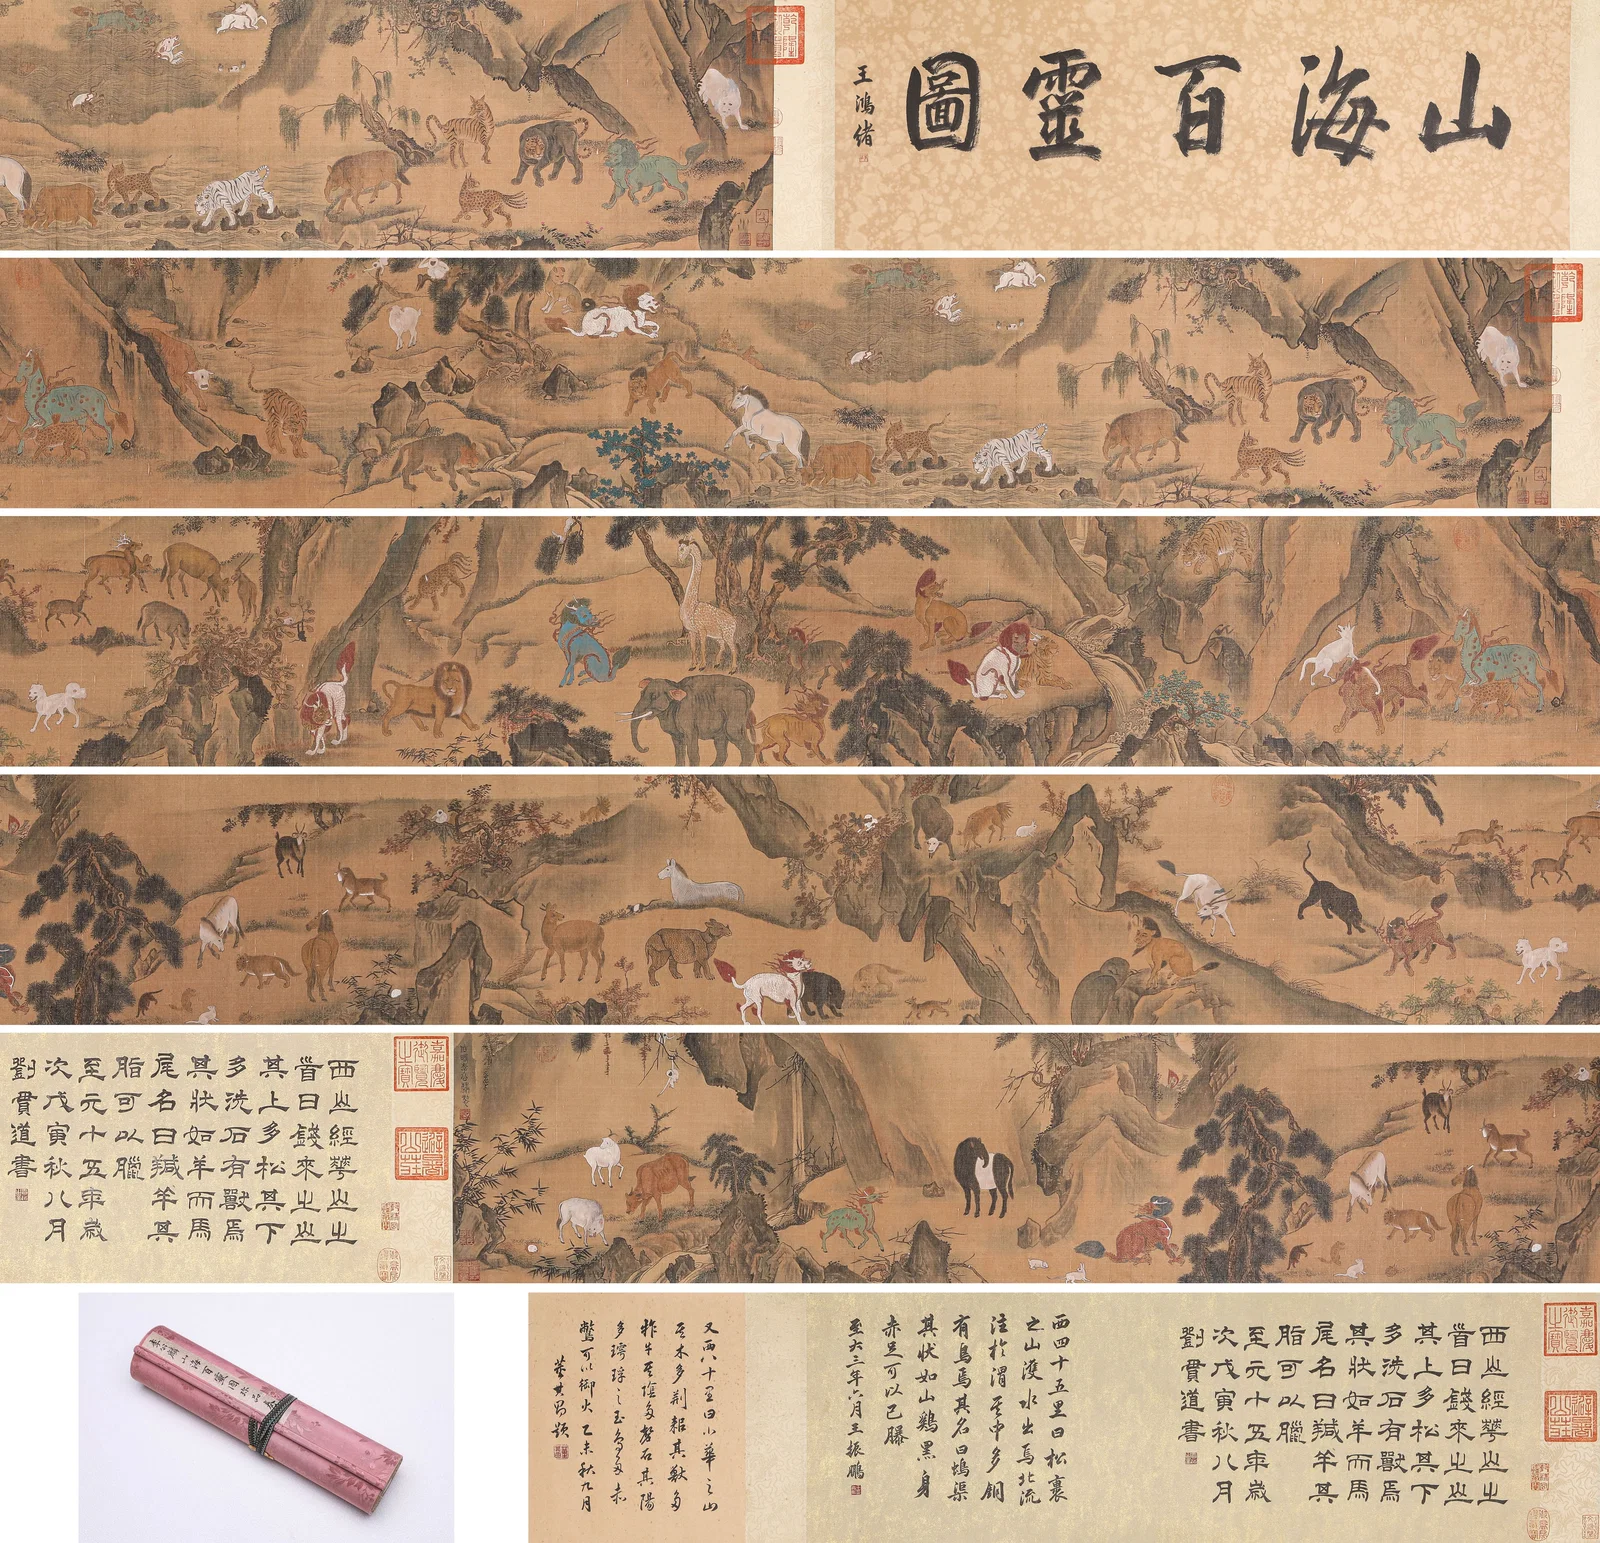 山海百靈圖
王鴻緒
乾隆
西山經華山之
首曰錢來之山
其上多松其下
多洗石有獸焉
其狀如羊而馬
尾名曰羬羊其
脂可以臘
至元十五年歲
次戊寅秋八月
劉貫道書
嘉慶御覽之寶
避暑山莊
西山經華山之
首曰錢來之山
其上多松其下
多洗石有獸焉
其狀如羊而馬
尾名曰羬羊其
脂可以臘
至元十五年歲
次戊寅秋八月
劉貫道書
嘉慶御覽之寶
避暑山莊
西四十五里曰松裏
之山濩水出焉北流
注於渭其中多銅
有鳥焉其名曰鴖渠
其狀如山鷄黑身
赤足可以已𦡱
至大三年六月王振鵬
又西八十里曰小華之山
其木多荆杞其獸多
㸲牛其陰多磬石其陽
多㻬琈之玉鳥多赤
鷩可以御火乙未秋九月
董其昌題
山海百靈圖